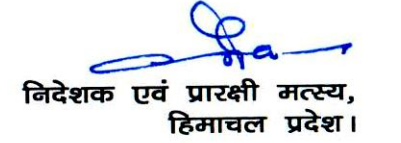 निदेशक एवं प्रारक्षी मत्स्य,
हिमाचल प्रदेश।